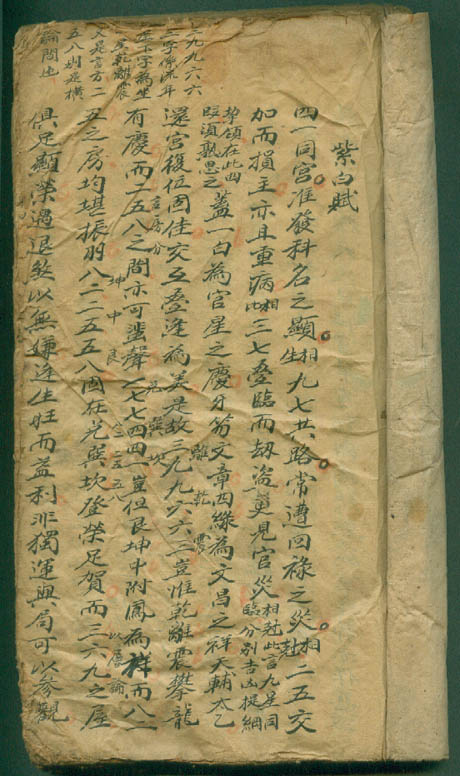 紫白賦
四一同宮准發科名之顯相生九七共路常遭回祿之災相尅二五交
加而損主亦且重病相比三七叠臨而刼盜更見官災相尅此言九星同
臨分別吉凶提綱
挈領在此四
臨須熟思之蓋一白為官星之慶牙笏文章四綠為文昌之祥天輔太乙
離乾震
還宮復位固佳交互叠逢為美是故三九九六六三豈惟乾離震攀龍
言房分
兌巽坎
有慶而二五八之間亦可蜚聲一七七四四一豈但艮坤中附鳳為祥而八二
坤中艮
以層論
五之房均堪振羽八二二五五八固在兌巽坎登榮足賀而三六九之屋
俱足顯榮遇退殺以無嫌逢生旺而益利非獨運與局可以參觀
三九九六六
三字係流年
在下字為坐
星乾離震
又是言方二
五八則是橫
論間也